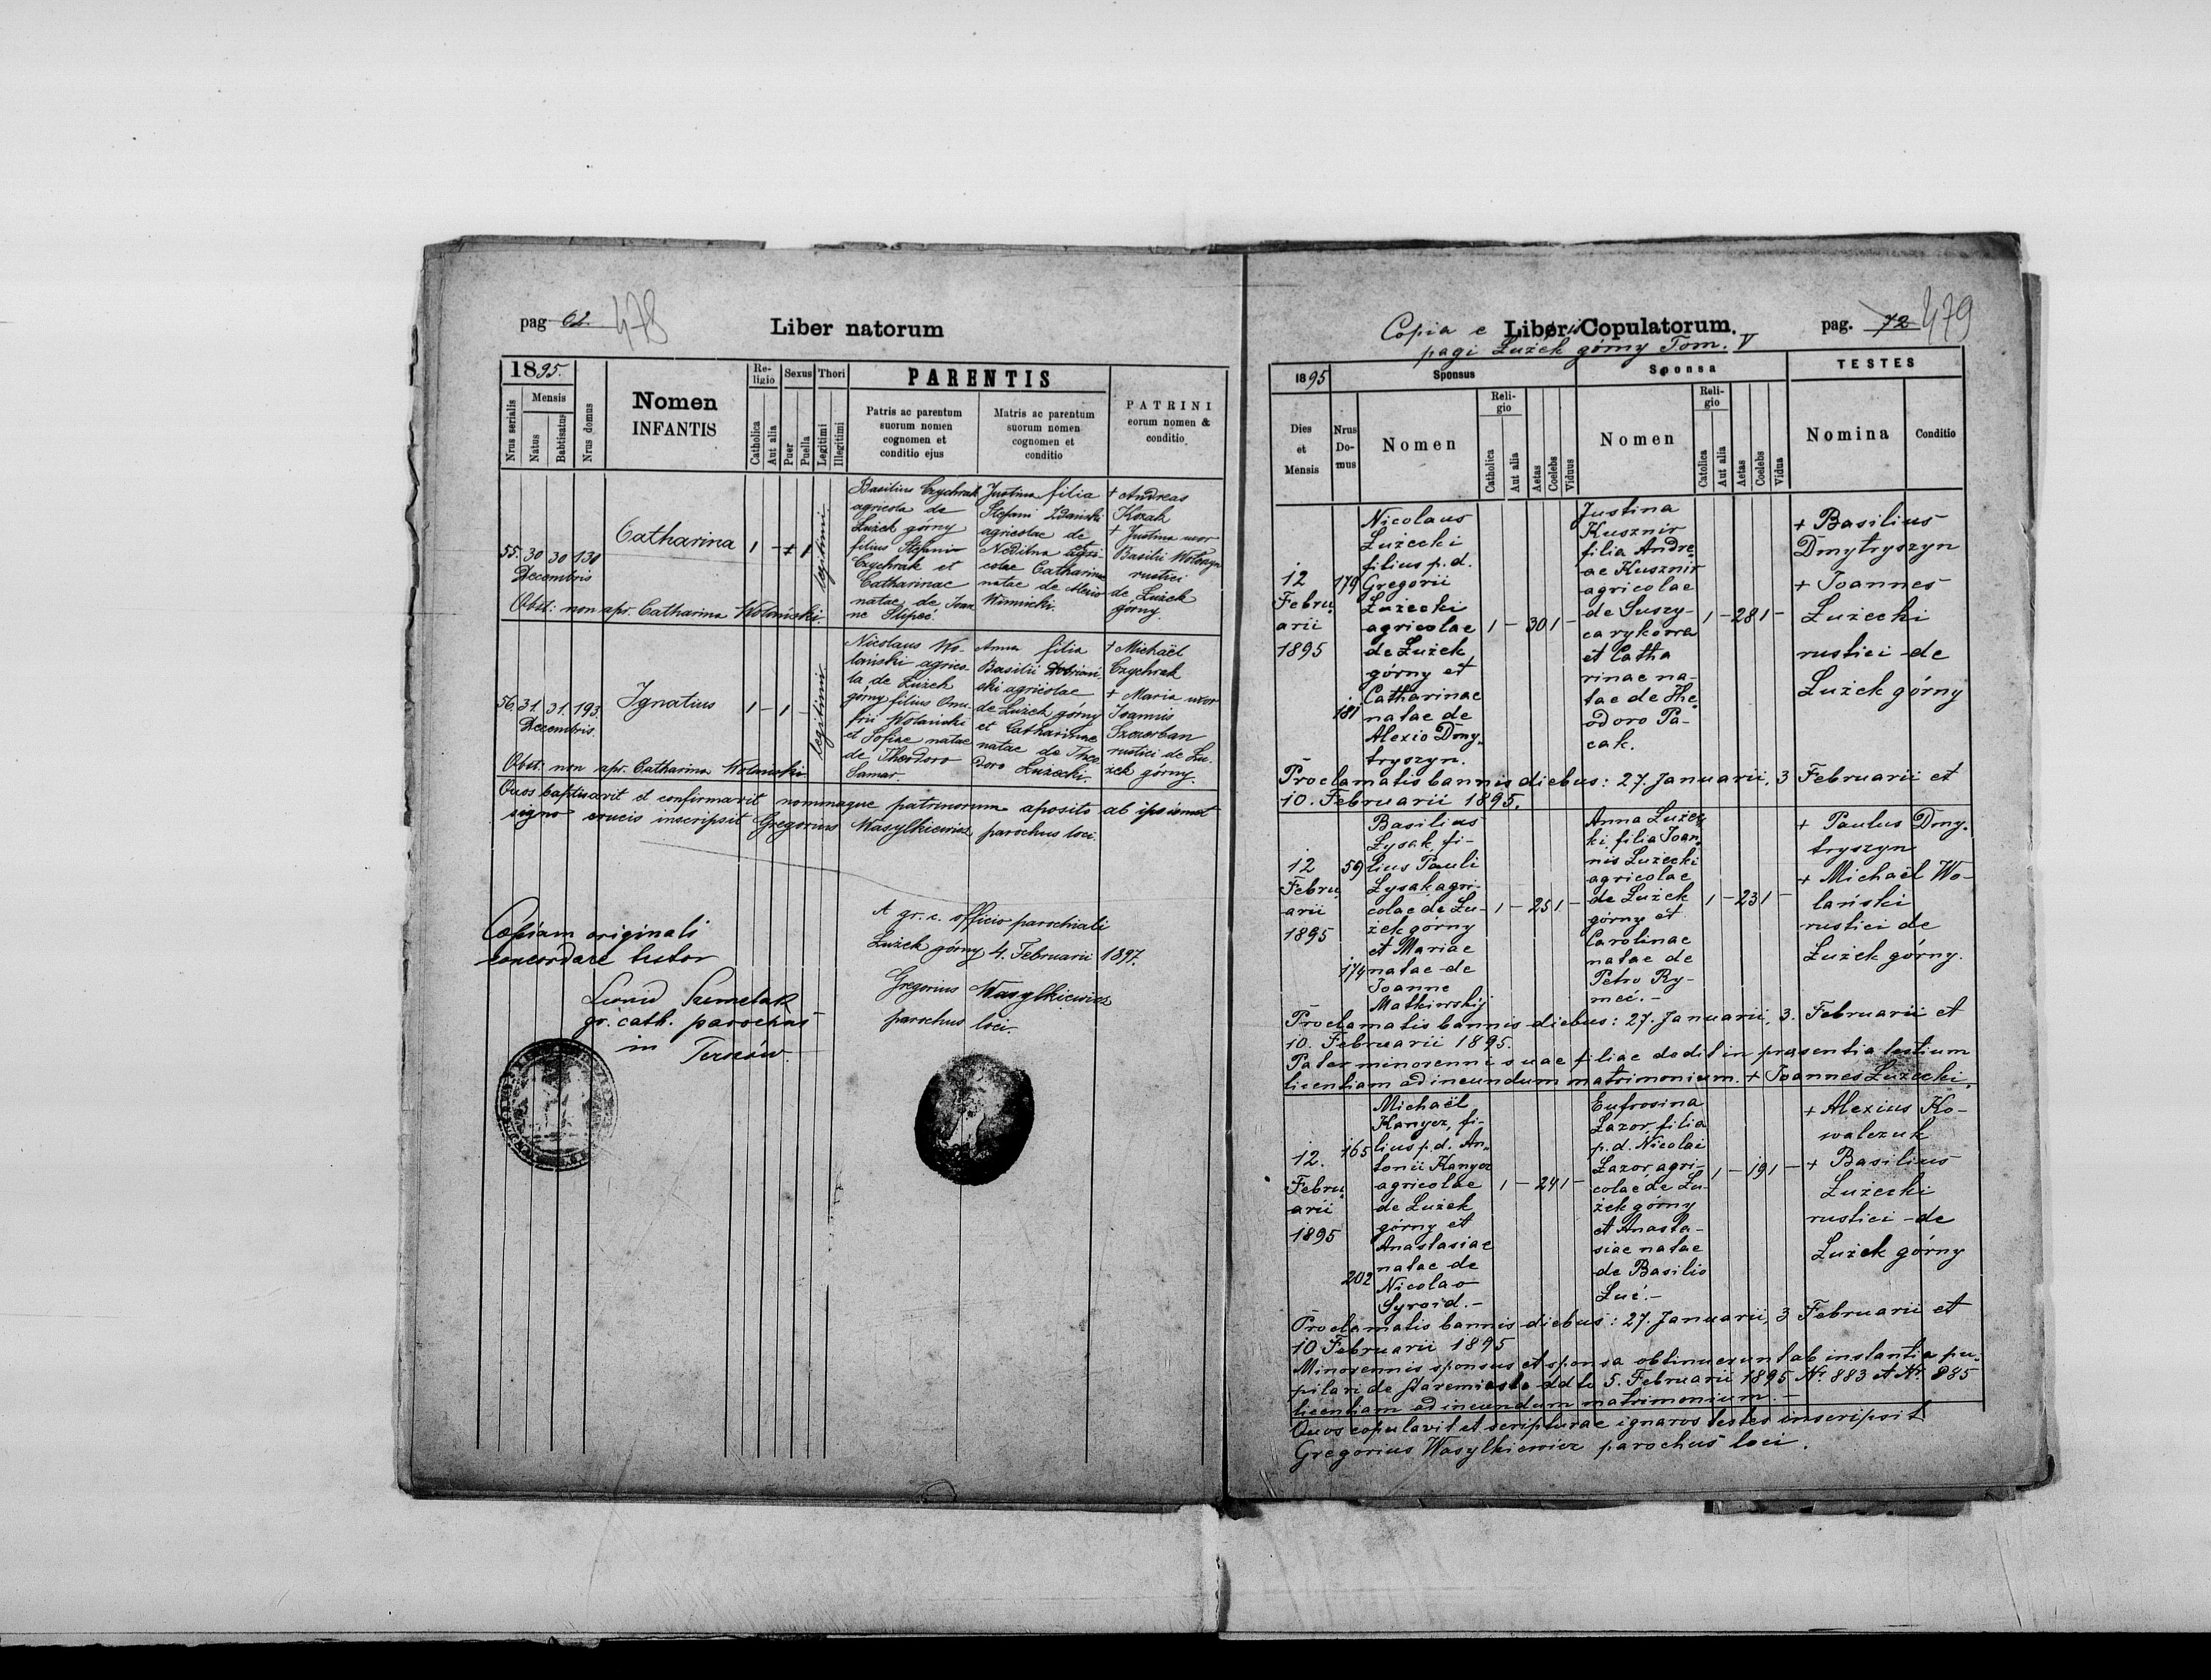 pag 62.
478
Liber natorum
1895.
Nrus serialis
Mensis
Natus
Babtisatus
Nrus domus
Nomen
INFANTIS
Re-
ligio
Catholica
Aut alia
Sexus
Puer
Puella
Thori
Legitimi
Illegitimi
PARENTIS
Patris ac parentum
suorum nomen
cognomen et
conditio ejus
Matris ac parentum
suorum nomen
cognomen et
conditio
PATRINI
eorum nomen &
conditio
55. 30 30 130
Decembris
Catharina
1 - 1
legitimi
Basilius Czychrak
agricola de
Łużek górny
filius Stefani
Czychrak et
Catharinae
natae de Joan
ne Slipeć.
Justina filia
Stefani Zdański
agricolae de
Nedilna et agri-
colae Catharinae
natae de Alexio
Winnicki.
+ Andreas
Kozak
+ Justina uxor
Basilii Wołoszyn
rustici
de Łużek
górny.
Obst: non apr. Catharina Wolański.
56. 31. 31. 193.
Decembris
Ignatius
1 - 1 -
legitimi
Nicolaus Wo-
lański agrico
la de Łużek
górny filius Onu-
frii Wolański
et Sofiae natae
de Theodoro
Samar.
Anna filia
Basilii Dobriań-
ski agricolae
de Łużek górny
et Catharinae
natae de Theo
doro Łużecki.
+ Michaël
Czychrak
+ Maria uxor
Joannis
Szczerban
rustici de Łu-
żek górny.
Obst: non apr. Catharina Wolański
Quos baptisavit et confirmavit nominaque patrinorum aposito ab ipsismet
signo crucis inscripsit Gregorius Wasylkiewicz parochus loci.
Copiam originali
concordare testor
gr. cath. parochus
in Terszów.
A gr. c. officio parochiali
Łużek górny 4. Februarii 1897.
Gregorius Wasylkiewicz
parochus loci.
Copia e Libri Copulatorum.
pagi Łużek górny Tom. V
pag. 72
479
1895
Sponsus
Sponsa
TESTES
Dies
et
Mensis
Nrus
Do-
mus
Nomen
Reli-
gio
Catholica
Aut alia
Aetas
Coelebs
Viduus
Nomen
Reli-
gio
Catolica
Aut alia
Aetas
Coelebs
Vidua
Nomina
Conditio
12
Febru
arii
1895
179
181
Nicolaus
Łużecki
filius p.d.
Gregorii
Łużecki
agricolae
de Łużek
górny et
Catharinae
natae de
Alexio Dmy-
tryszyn.
1 - 30 1 -
Justina
Kusznir
filia Andre
ae Kusznir
agricolae
de Suszy-
ca rykowa
et Catha
rinae na-
tae de The
odoro Pa-
cak.
1 - 28 1 -
+ Basilius
Dmytryszyn
+ Joannes
Łużecki
rustici de
Łużek górny
Proclamatis bannis diebus: 27. Januarii, 3 Februarii et
10. Februarii 1895.
12
Febru
arii
1895
59
174
Basilius
Łysak, fi-
lius Pauli
Łysak agri-
colae de Łu-
żek górny
et Mariae
natae de
Joanne
Matkiwskij
1 - 25 1 -
Anna Łużec
ki, filia Joan
nis Łużecki
agricolae
de Łużek
górny et
Carolinae
natae de
Petro Ry-
meć. -
1 - 23 1 -
+ Paulus Dmy-
tryszyn
+ Michaël Wo-
lański
rustici de
Łużek górny.
Proclamatis bannis diebus: 27. Januarii, 3. Februarii et
10. Februarii 1895.
Pater minorenni suae filiae dedit in praesentia testium
licentiam ad ineundum matrimonium. + Joannes Łużecki.
12.
Febru
arii
1895
165
202
Michaël
Kanycz, fi-
lius p.d. An-
tonii Kanycz
agricolae
de Łużek
górny et
Anastasiae
natae de
Nicolao
Syroid. -
1 - 24 1 -
Eufrosina
Łazor filia
p.d. Nicolai
Łazor agri-
colae de Łu-
żek górny
et Anasta-
siae natae
de Basilio
Łuć. -
1 - 19 1 -
+ Alexius Ko-
walczuk
+ Basilius
Łużecki
rustici de
Łużek górny
Proclamatis bannis diebus: 27. Januarii, 3 Februarii et
10 Februarii 1895
Minorennis sponsus et sponsa obtinuerunt ab instantia pu-
pilari de Staremiasto ddto 5. Februarii 1895 Nr. 883 et Nr. 885
licentiam ad ineundum matrimonium. -
Quos copulavit et scripturae ignaros testes inscripsit
Gregorius Wasylkiewicz parochus loci.